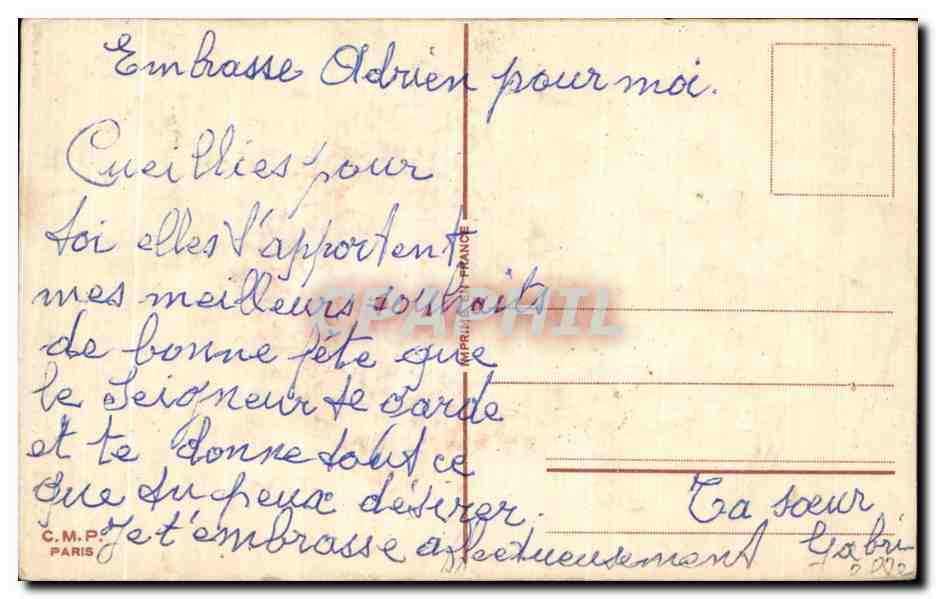 Embrasse Adrien pour moi.
Cueillies pour
toi elles t'apportent
mes meilleurs souhaits
de bonne fête que
le Seigneur te garde
et te donne tout ce
que tu peux désirer.
Je t'embrasse affectueusement
Ta sœur
Gabri
IMPRIMÉ EN FRANCE
C.M.P.
PARIS
CPAPHIL